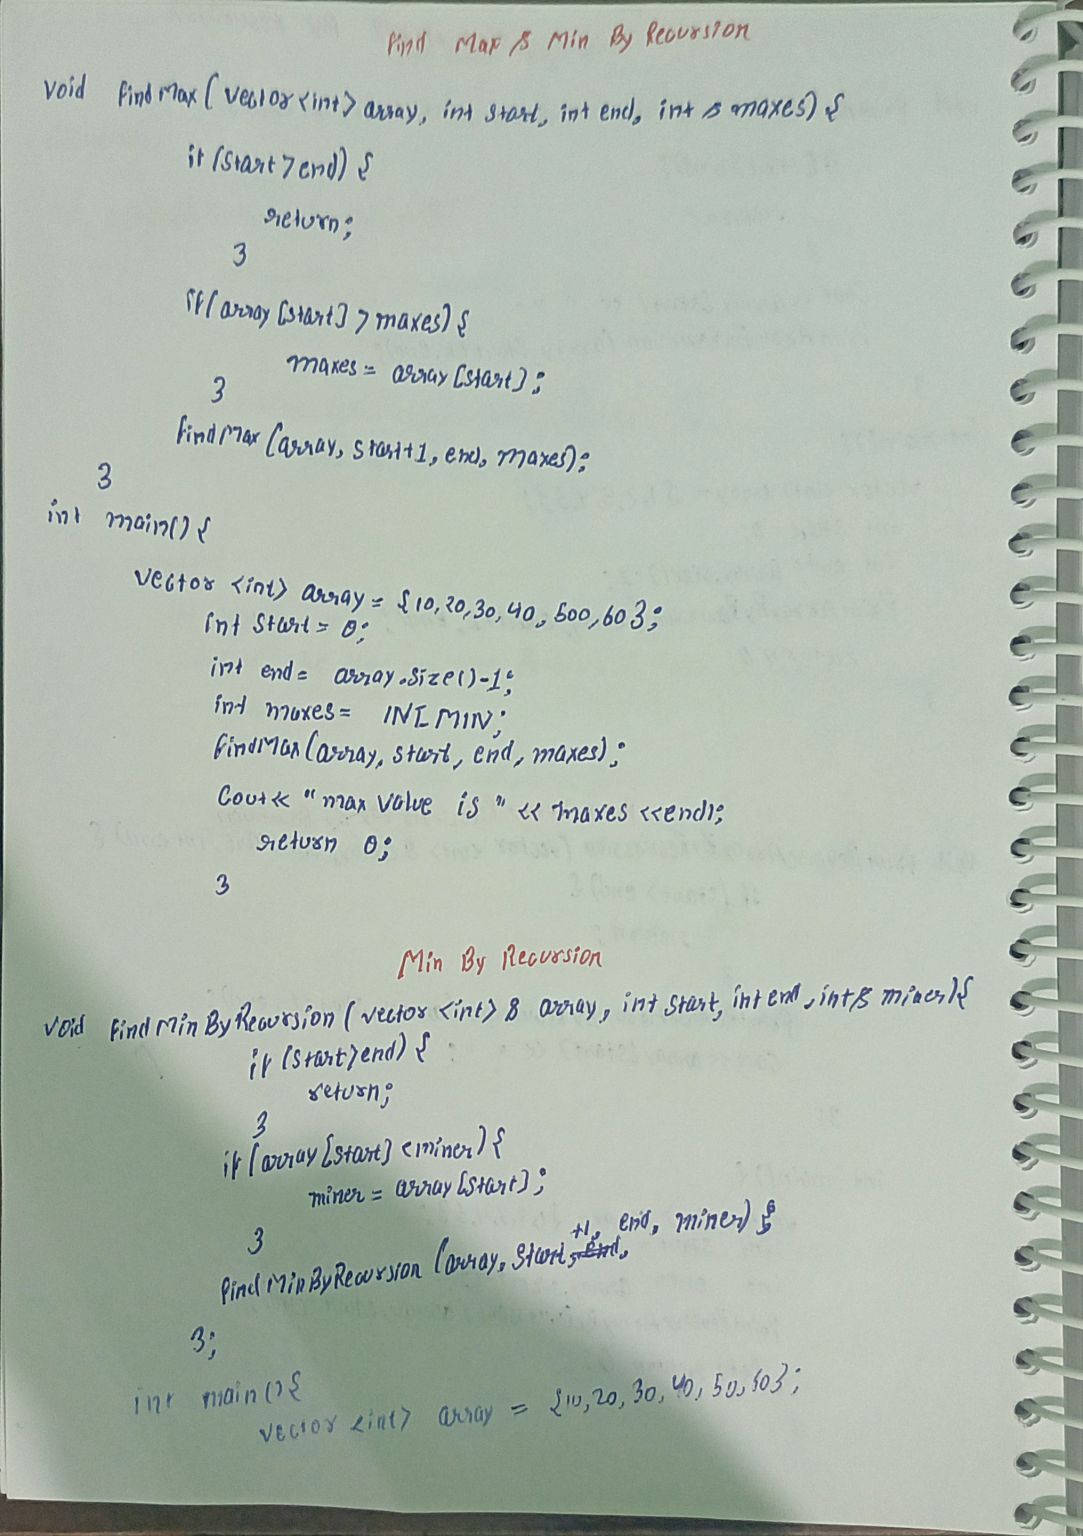 Find Max & Min By Recursion
void findMax(vector<int> array, int start, int end, int & maxes) {
if (start > end) {
return;
}
if(array[start] > maxes) {
maxes = array[start];
}
findMax(array, start+1, end, maxes);
}
int main() {
vector <int> array = {10,20,30,40,500,60};
int start = 0;
int end = array.size()-1;
int maxes = INT_MIN;
findMax(array, start, end, maxes);
cout << "max value is " << maxes <<endl;
return 0;
}
Min By Recursion
void findMinByRecursion(vector <int> & array, int start, int end, int& miner) {
if (start>end) {
return;
}
if (array[start] < miner) {
miner = array[start];
}
findMinByRecursion (array, start+1, end, miner);
};
int main () {
vector <int> array = {10,20,30,40,50,60};